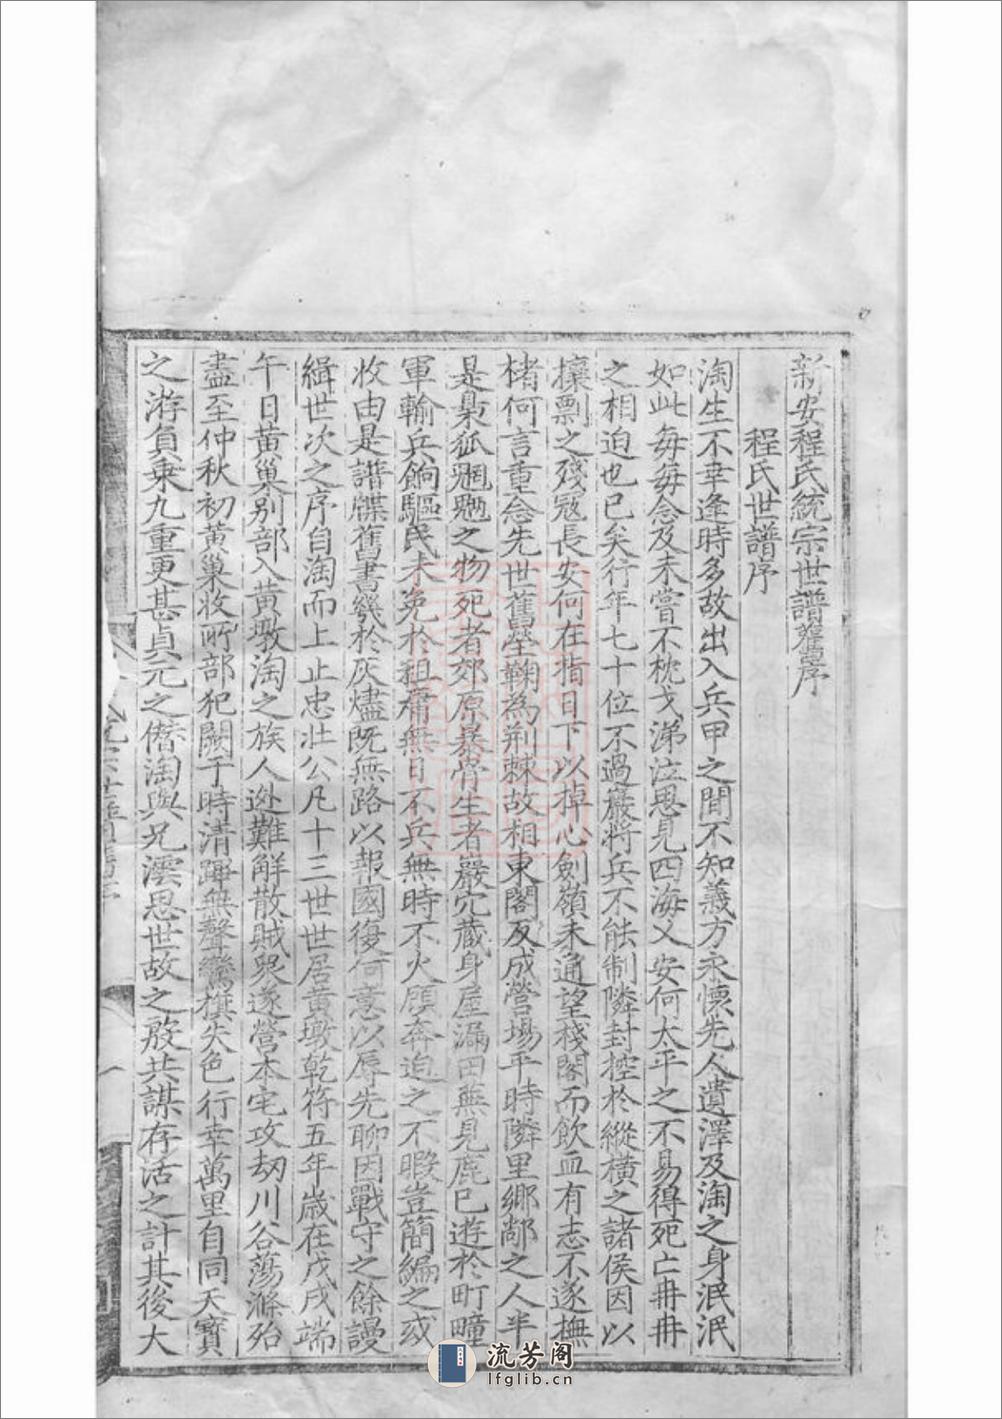 新安程氏統宗世譜舊序
程氏世譜序
淘生不幸逢時多故出入兵甲之間不知義方永懷先人遺澤及淘之身泯泯
如此每每念及未嘗不枕戈涕泣思見四海乂安何太平之不易得死亡冉冉
之相迫也已矣行年七十位不過巖將兵不能制隣封控於縱橫之諸侯因以
攘剽之殘冦長安何在指日下以掉心劍嶺未通望棧閣而飲血有志不遂撫
楮何言重念先世舊塋鞠為荆棘故相東閣反成營場平時隣里鄉鄰之人半
是梟狐魍魎之物死者郊原暴骨生者巖穴藏身屋漏田蕪見鹿巳遊於町疃
軍輸兵餉驅民未免於租庸無日不兵無時不火顧奔迫之不暇豈簡編之或
收由是譜牒舊書幾於灰燼既無路以報國復何意以辱先聊因戰守之餘謾
緝世次之序自淘而上止忠壯公凡十三世世居黄墩乾符五年歲在戊戌端
午日黄巢别部入黄墩淘之族人逊難解散賊衆遂營本宅攻刧川谷蕩滌殆
盡至仲秋初黄巢收所部犯闕于時清蹕無聲鸞旗失色行幸萬里自同天寳
之游負乗九重更甚貞元之僭淘與兄澐思世故之殷共謀存活之計其後大
流芳阁
lfglib.cn